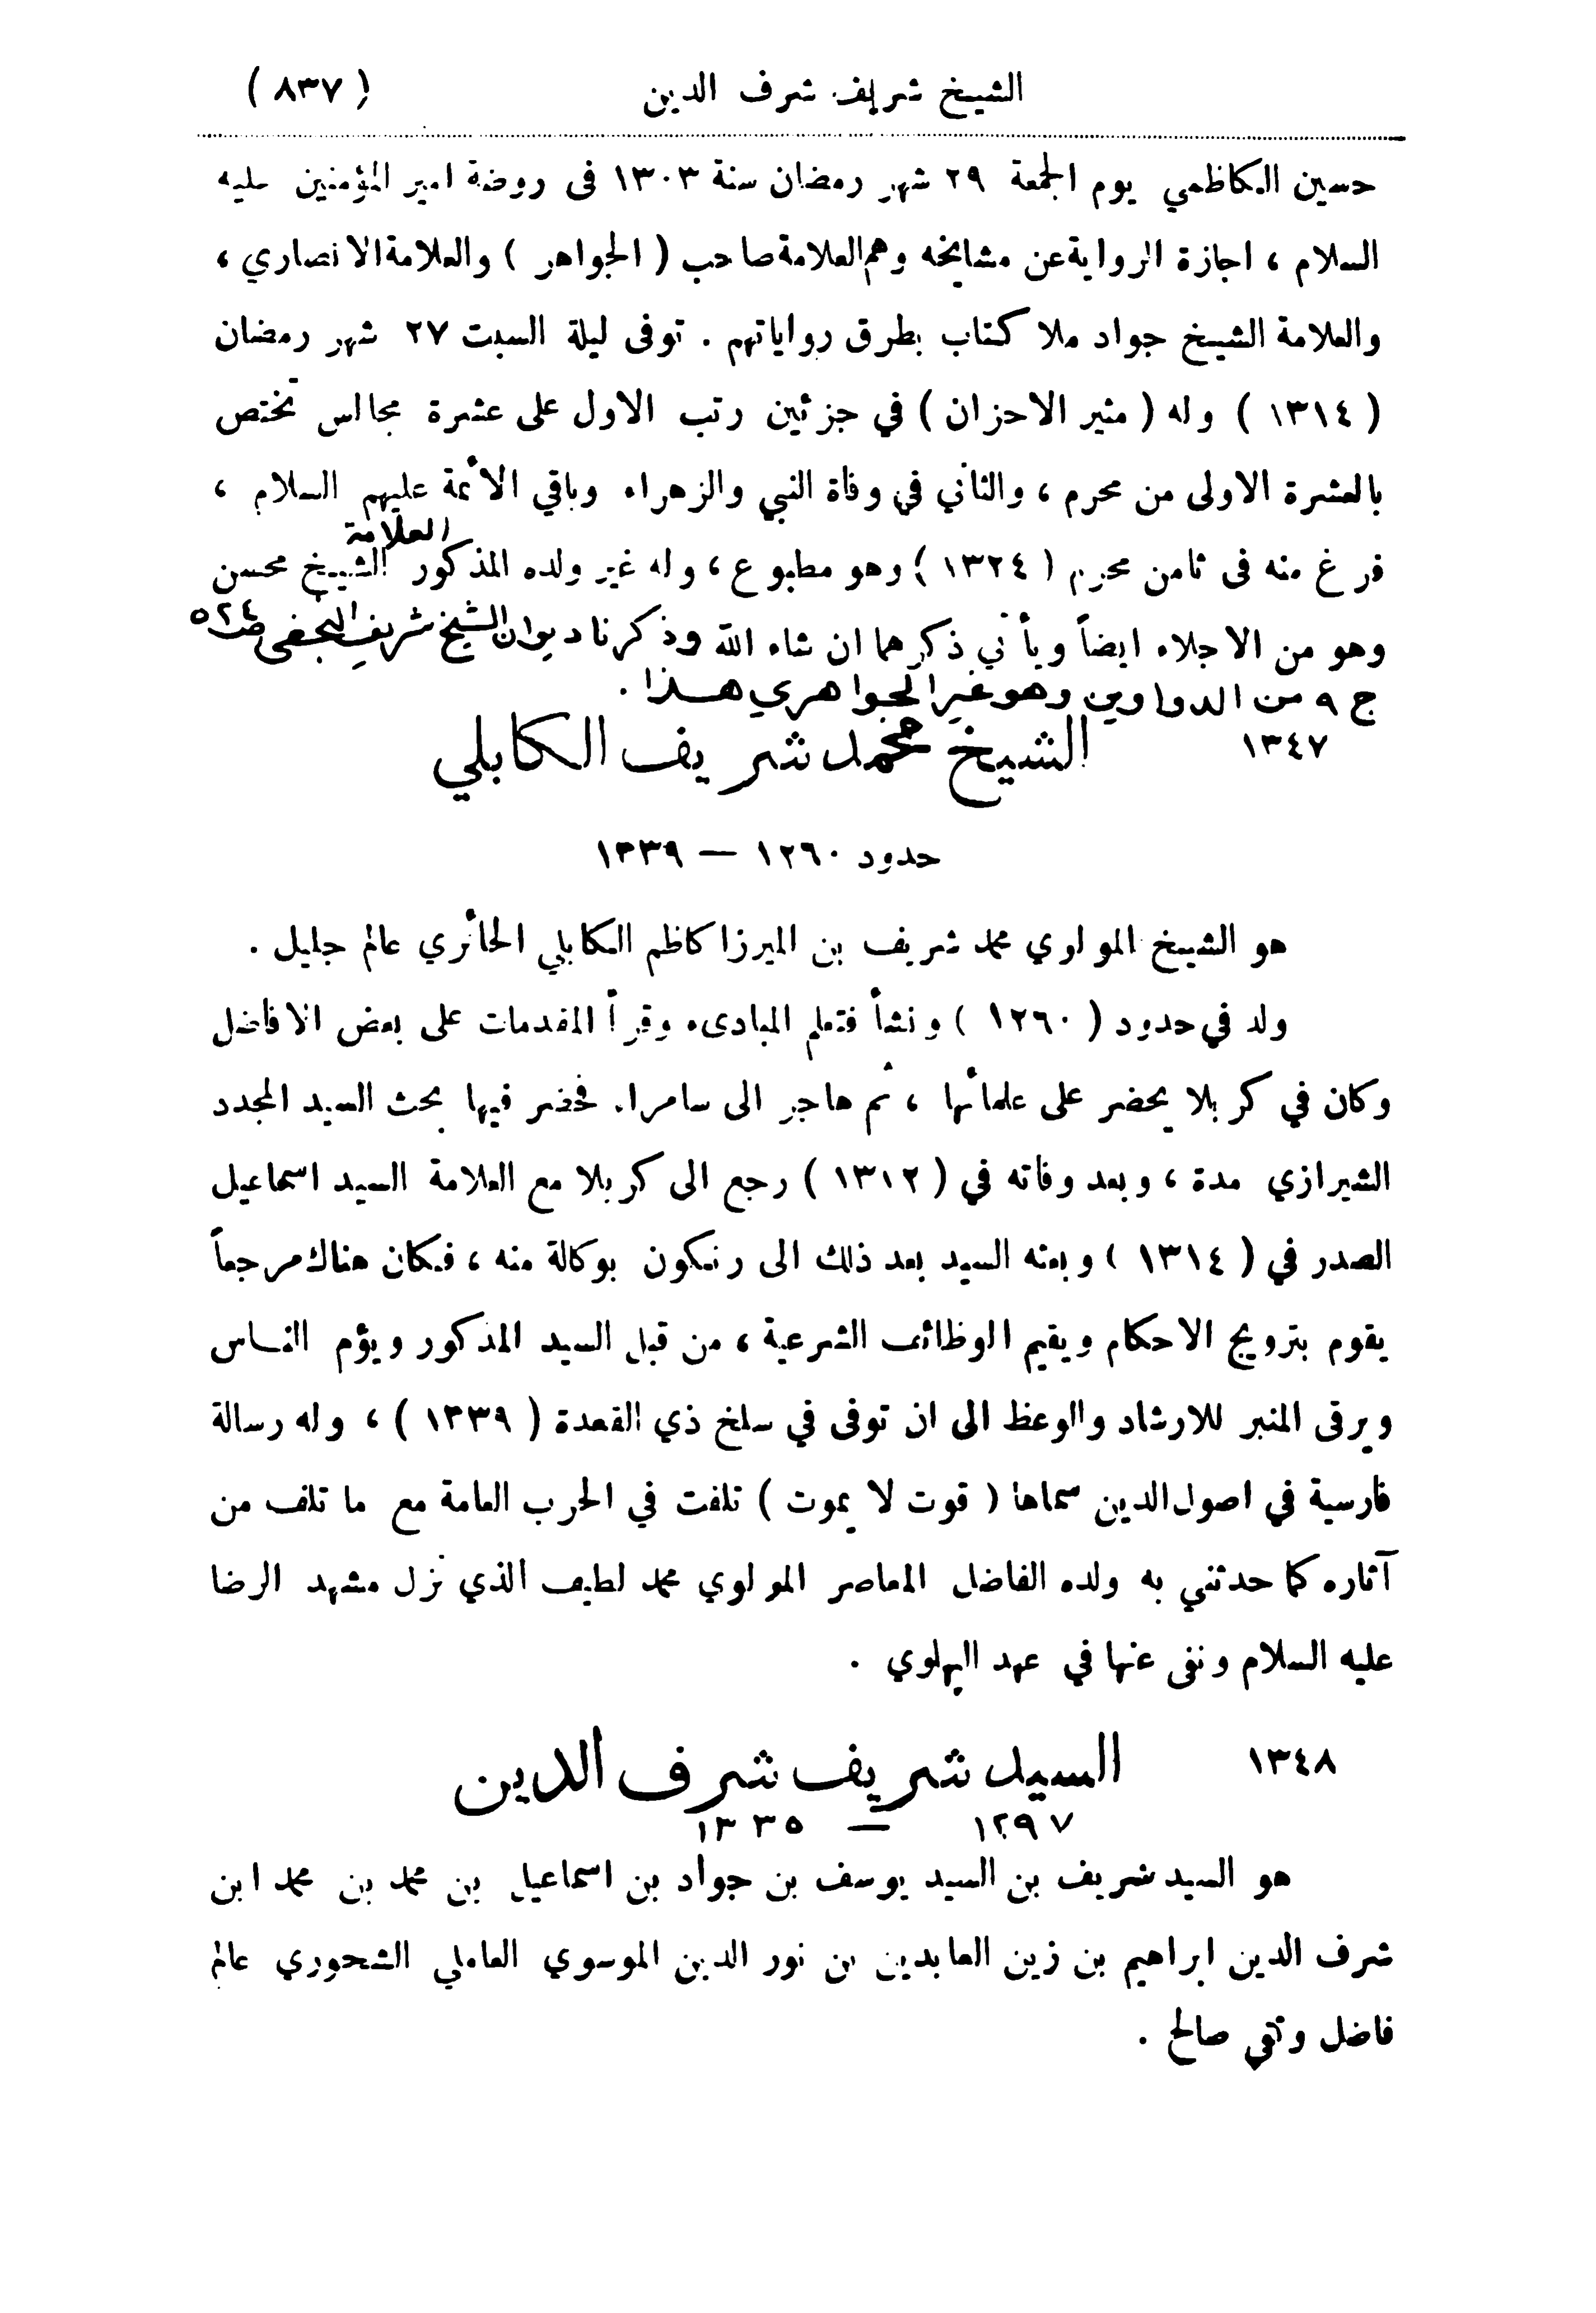 الشيخ شريف شرف الدين (٨٣٧)
حسين الكاظمي يوم الجمعة ٢٩ شهر رمضان سنة ١٣٠٣ فى روضة امير المؤمنين عليه
السلام ، اجازة الرواية عن مشايخه وهم العلامة صاحب ( الجواهر ) والعلامة الانصاري ،
والعلامة الشيخ جواد ملا كتاب بطرق رواياتهم . توفى ليلة السبت ٢٧ شهر رمضان
( ١٣١٤ ) وله ( مثير الاحزان ) في جزئين رتب الاول على عشرة مجالس تختص
بالعشرة الاولى من محرم ، والثاني في وفاة النبي والزهراء وباقي الأئمة عليهم السلام ،
فرغ منه فى ثامن محرم ( ١٣٢٤ ) وهو مطبوع ، وله غير ولده المذكور العلامة الشيخ محسن
وهو من الاجلاء ايضاً ويأتي ذكرهما ان شاء الله وذكرنا ديوان الشيخ شريف النجفى ص ٥٢٤
ج ٩ من الدواوين وهو غير الجواهري هـذا .
١٣٤٧ الشيخ محمد شريف الكابلي
حدود ١٢٦٠ — ١٣٣٩
هو الشيخ المولوي محمد شريف بن الميرزا كاظم الكابلي الحائري عالم جليل .
ولد في حدود ( ١٢٦٠ ) ونشأ فتعلم المبادىء وقرأ المقدمات على بعض الافاضل
وكان في كربلا يحضر على علمائها ، ثم هاجر الى سامراء فحضر فيها بحث السيد المجدد
الشيرازي مدة ، وبعد وفاته في ( ١٣١٢ ) رجع الى كربلا مع العلامة السيد اسماعيل
الصدر في ( ١٣١٤ ) وبعثه السيد بعد ذلك الى رنكون بوكالة منه ، فكان هناك مرجعاً
يقوم بترويج الاحكام ويقيم الوظائف الشرعية ، من قبل السيد المذكور ويؤم النـاس
ويرقى المنبر للارشاد والوعظ الى ان توفى في سلخ ذي القعدة ( ١٣٣٩ ) ، وله رسالة
فارسية في اصول الدين سماها ( قوت لا يموت ) تلفت في الحرب العامة مع ما تلف من
آثاره كما حدثني به ولده الفاضل المعاصر المولوي محمد لطيف الذي نزل مشهد الرضا
عليه السلام ونفى عنها في عهد البهلوي .
١٣٤٨ السيد شريف شرف الدين
١٢٩٧ — ١٣٣٥
هو السيد شريف بن السيد يوسف بن جواد بن اسماعيل بن محمد بن محمد ابن
شرف الدين ابراهيم بن زين العابدين بن نور الدين الموسوي العاملي الشحوري عالم
فاضل وتقي صالح .